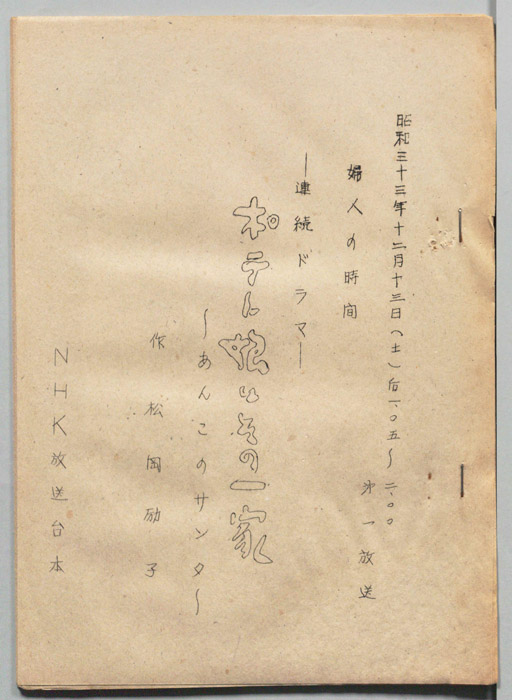 昭和三十三年十二月十三日(土)后一、〇五〜二、〇〇
第一放送
婦人の時間
―連続ドラマ―
ポテト娘とその一家
〜あんこのサンタ〜
作 松岡励子
NHK放送台本